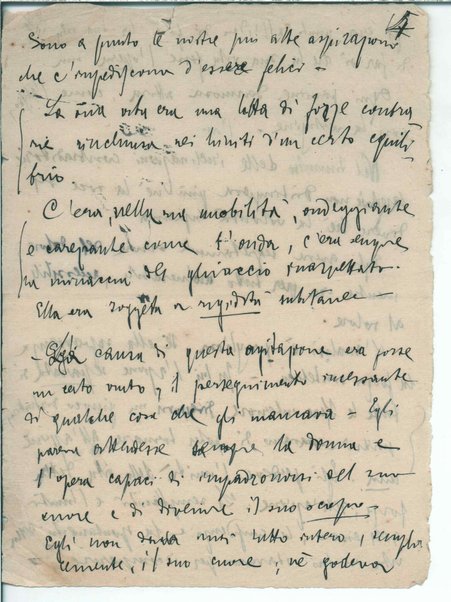 4
Sono a punto le nostre più alte aspirazioni
che c'impediscono d'essere felici –
La sua vita era una lotta di forze contra
rie rinchiusa nei limiti d'un certo equili
brio
C'era, nella sua mobilità, ondeggiante
e carezzante come l'onda, c'era sempre
la minaccia del ghiaccio inaspettato.
Ella era soggetta a rigidità subitanee –
– causa di questa agitazione era forse
un certo vuoto, il perseguimento incessante
di qualche cosa che gli mancava – Egli
pareva attendesse sempre la donna e
l'opera capaci di impadronirsi del suo
cuore e di divenire il suo scopo –
Egli non dava mai tutto intero, sempli
cemente, il suo cuore, nè godeva